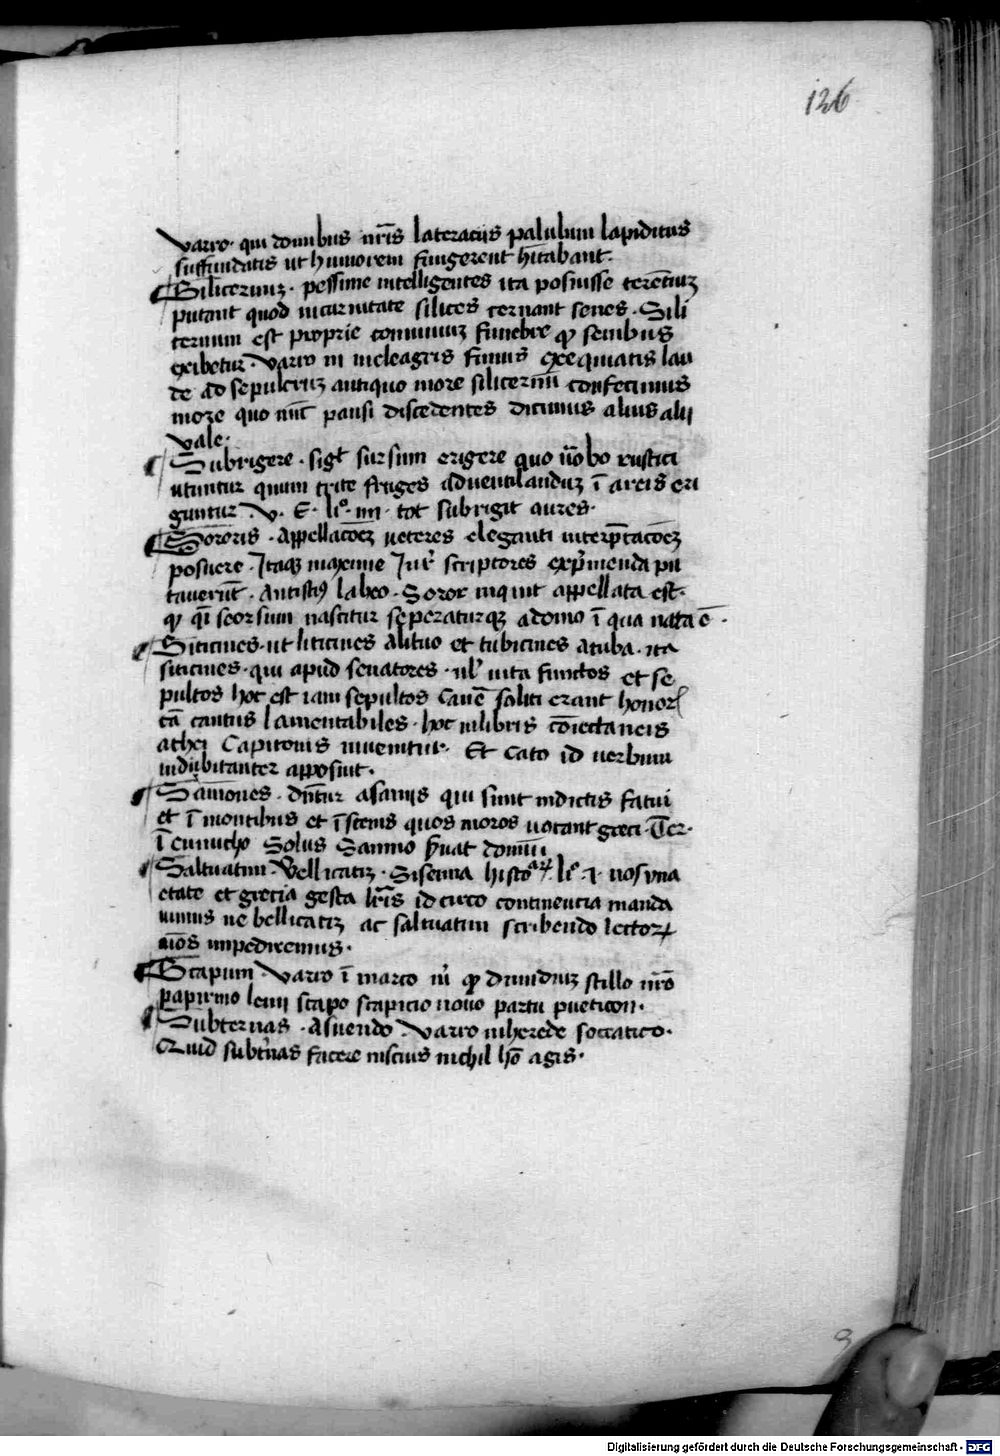 126
Varro · qui domibus nr̄is lateraciis palulum lapiditus
suffundatis ut humorem fungerent hītabant ·
Silicernuꝫ · pessime intelligentes ita posuisse terētiuꝫ
putant quod incuruitate silices cernant senes · Sili
cernum est proprie conuiuiuꝫ funebre ꝙ senibus
exibetur · Varro in meleagris funus exequiatis lau
de ad sepulcruꝫ antiquo more silicerniū confecimus
more quo nūc pausi discedentes dicimus alius alii
vale ·
Subrigere · sigt sursum erigere quo ūbo rustici
utuntur quum trite fruges aduentilanduꝫ ī arcis eri
guntur · V · E · li° · iiii · tot subrigit aures ·
Sororis · Appellacōeꝫ ueteres eleganti interp̄tacōeꝫ
posuere · Itaqꝫ maxime Iur' scriptores exp̄menda pu
tauerūt · Antisti' labeo · Soror inquit appellata est ·
ꝙ q̄i seorsum nascitur seperaturqꝫ adomo ī qua nata ē ·
Siticines · ut liticines alituo et tubicines atuba · ita
siticines · qui apud senatores · ul' uita functos et se
pultos hoc est iam sepultos canē soliti erant honor
cā cantus lamentabiles · hoc inlibris cōiectaneis
athei Capitonis inuenitur · Et Cato id uerbum
indubitanter apposuit ·
Saniones · dn̄tur asaniis qui sunt indictis fatui
et ī montibus et ī scenis quos moros uocant greci · Ter ·
ī eunucho Solus Sannio s̄uat domūi
Saltuatim · Vellicatiꝫ · Sisenna histoarꝝ · li° · 1 · nos una
etate et grecia gesta lr̄is idcirco continencia manda
uimus ne bellicatiꝫ ac saltuatim scribendo lectorꝝ
aīos impediremus ·
Scapum · Varro ī marco iū ꝙ dimidiuꝫ stillo nr̄o
papirino leuii scapo scapicio nouo partu pueticon ·
Subternas · Asuendo · Varro inherede soccatico ·
Quid subt̄nas facere niscius nichil hō agis ·
9
Digitalisierung gefördert durch die Deutsche Forschungsgemeinschaft - DFG